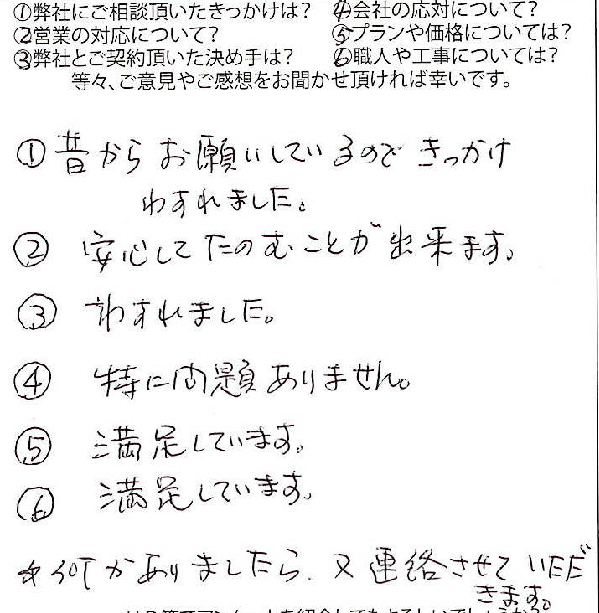 ①弊社にご相談頂いたきっかけは? ④会社の応対について?
②営業の対応について? ⑤プランや価格については?
③弊社とご契約頂いた決め手は? ⑥職人や工事については?
等々、ご意見やご感想をお聞かせ頂ければ幸いです。
① 昔からお願いしているので きっかけ
わすれました。
② 安心してたのむことが出来ます。
③ わすれました。
④ 特に問題ありません。
⑤ 満足しています。
⑥ 満足しています。
何かありましたら、又連絡させていただ
きます。